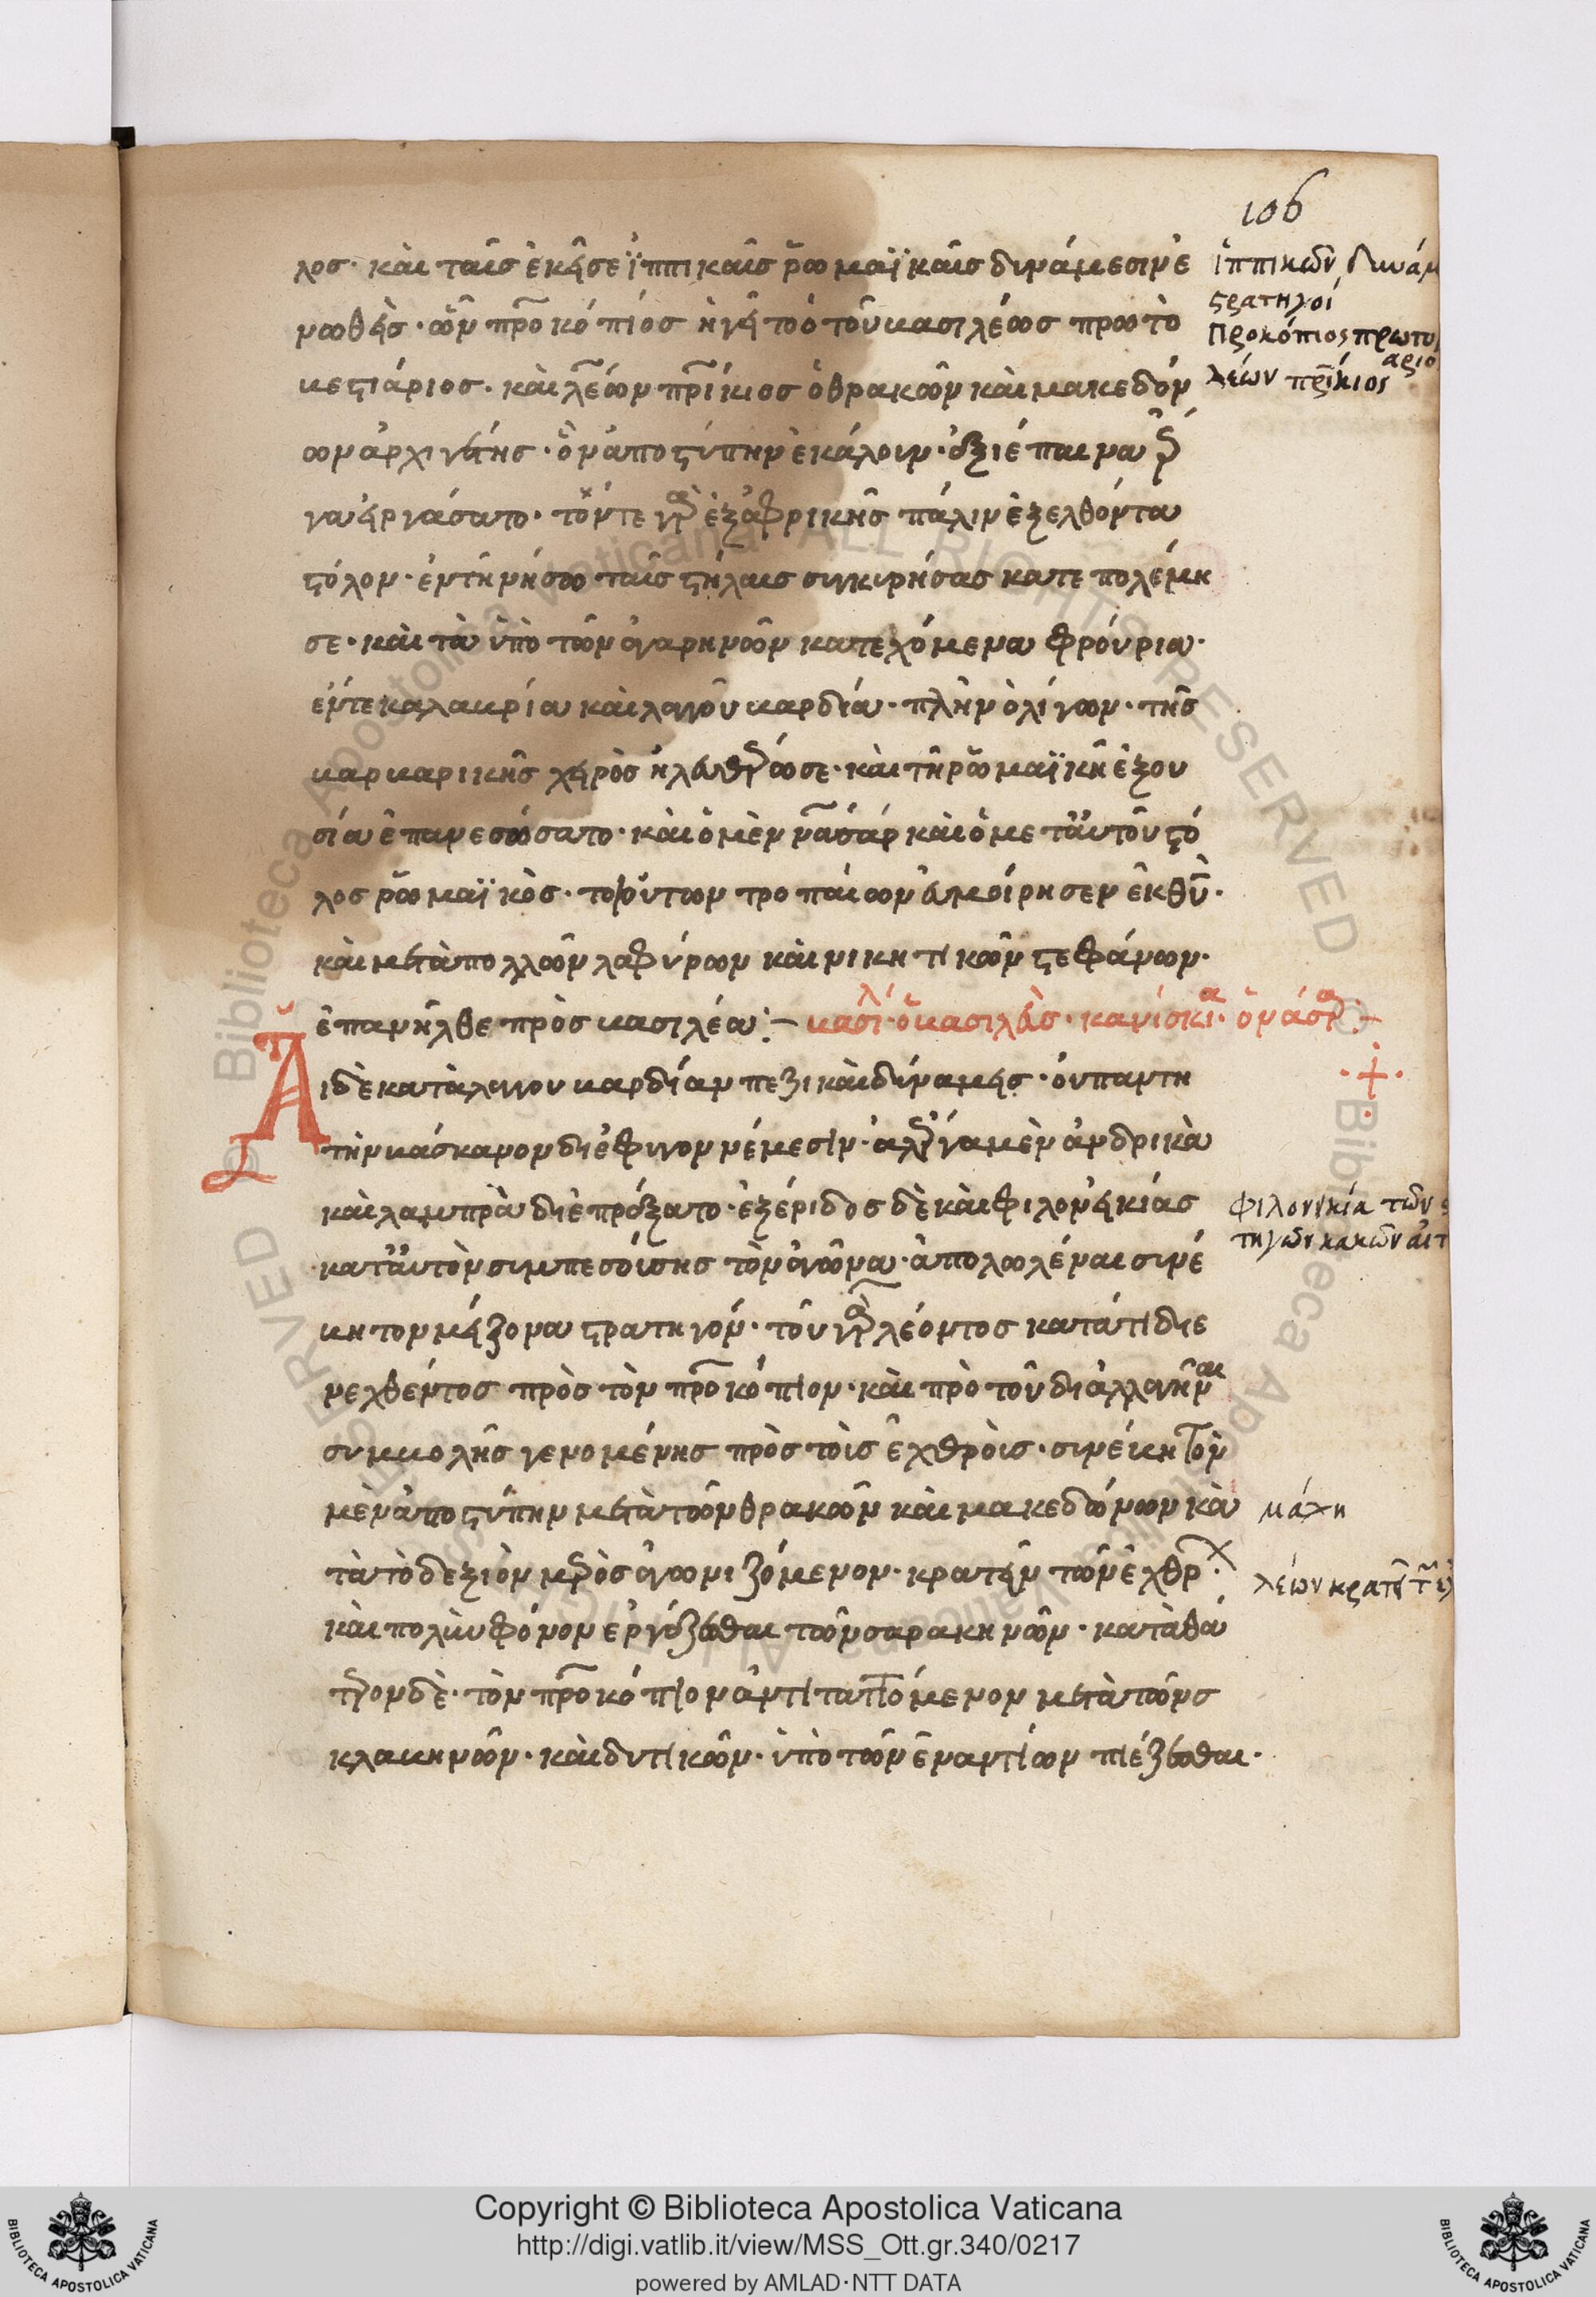 106
λος· καὶ ταῖς ἐκεῖσε ἱππικαῖς ῥωμαϊκαῖς δυνάμεσιν ἑ
νωθεὶς· ὧν προκόπιος ἡγεῖτο ὁ τοῦ βασιλέως πρωτο
βεστιάριος· καὶ λέων πρίκιος ὁ θρακῶν καὶ μακεδόν
ων ἀρχηγέτης· ὃν ἀποστύπην ἐκάλουν· ἀξιέπαινα
εἰργάσατο· τόν τε γὰρ ἐξ ἀφρικῆς πάλιν ἐξελθόντα
στόλον· ἐν τῇ νήσῳ ταῖς στήλαις συγκυρήσας κατεπολέμη
σε· καὶ τὰ ὑπὸ τῶν ἀγαρηνῶν κατεχόμενα φρούρια·
ἔν τε καλαβρία καὶ λαγοῦ βαρδία· πλὴν ὀλίγων· τῆς
βαρβαρικῆς χειρὸς ἠλευθέρωσε· καὶ τῇ ῥωμαϊκῇ ἐξου
σία ἐπανεσώσατο· καὶ ὁ μὲν νάσαρ καὶ ὁ μετ' αὐτοῦ στό
λος ῥωμαϊκὸς· τοιούτων τροπαίων εὐμοίρησεν ἐκ θυ·
καὶ μετὰ πολλῶν λαφύρων καὶ νικητικῶν στεφάνων·
ἐπανῆλθε πρὸς βασιλέα:– βασιλ· ὁ βασιλεὺς· κανίσκια· ὁ νάσαρ:–
Αἱ δὲ κατὰ λαγουβαρδίαν πεζικαὶ δύναμεις· οὐ παντη
τὴν βάσκανον διέφυγον νέμεσιν· ἀλλ' γαμὲν ἀνδρικὰ
καὶ λαμπρὰ διεπράξατο· ἐξ ἔριδος δὲ καὶ φιλονεικίας
κατ' αὐτὸν συμπεσούσης τὸν ἀγῶνα· ἀπολωλέναι συνέ
βη τον μείζονα στρατηγόν· τοῦ γὰρ λέοντος κατά τι διε
νεχθέντος πρὸς τὸν προκόπιον· καὶ πρὸ τοῦ διαλλαγῆναι
συμβολῆς γενομένης πρὸς τοὶς ἐχθρὸις· συνέβη τὸν
μὲν ἀποστύπην μετὰ τῶν θρακῶν καὶ μακεδώνων κα
τὰ τὸ δεξιὸν μέρος ἀγωνιζόμενον· κρατεῖν τῶν ἐχθρ·
καὶ πολὺν φόνον ἐργάζεσθαι τῶν σαρακηνῶν· κατὰ θά
τερον δὲ· τὸν προκόπιον ἀντιταττόμενον μετὰ τῶν σ
κλαβηνῶν· καὶ δυτικῶν· ὑπὸ τῶν ἐναντίων πιέζεσθαι·
ἱππικῶν δυνάμ
στρατηγοί
Προκόπιος πρωτο
αριο
λέων πρίκιος
φιλονικία τῶν σ
τηγῶν κακῶν αἰτ
μάχη
λέων κρατεῖ
Copyright © Biblioteca Apostolica Vaticana
http://digi.vatlib.it/view/MSS_Ott.gr.340/0217
powered by AMLAD·NTT DATA
BIBLIOTECA APOSTOLICA VATICANA
BIBLIOTECA APOSTOLICA VATICANA